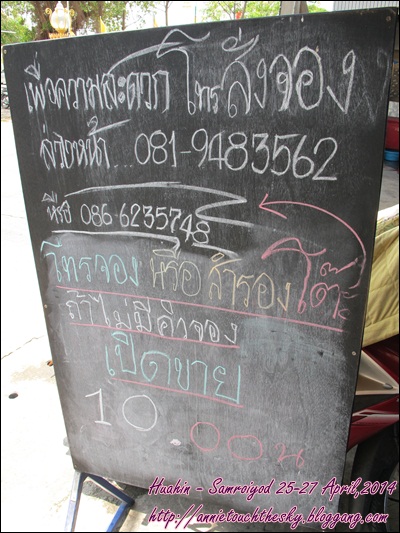 เพื่อความสะดวก โทรสั่งจอง
ล่วงหน้า... 081-9483562
086-6235748
โทรจอง หรือ สำรองโต๊ะ
ถ้าไม่มีคิวจอง
เปิดขาย
10.00น
Huahin - Samroiyod 25-27 April,2014
http://annietouchthesky.bloggang.com